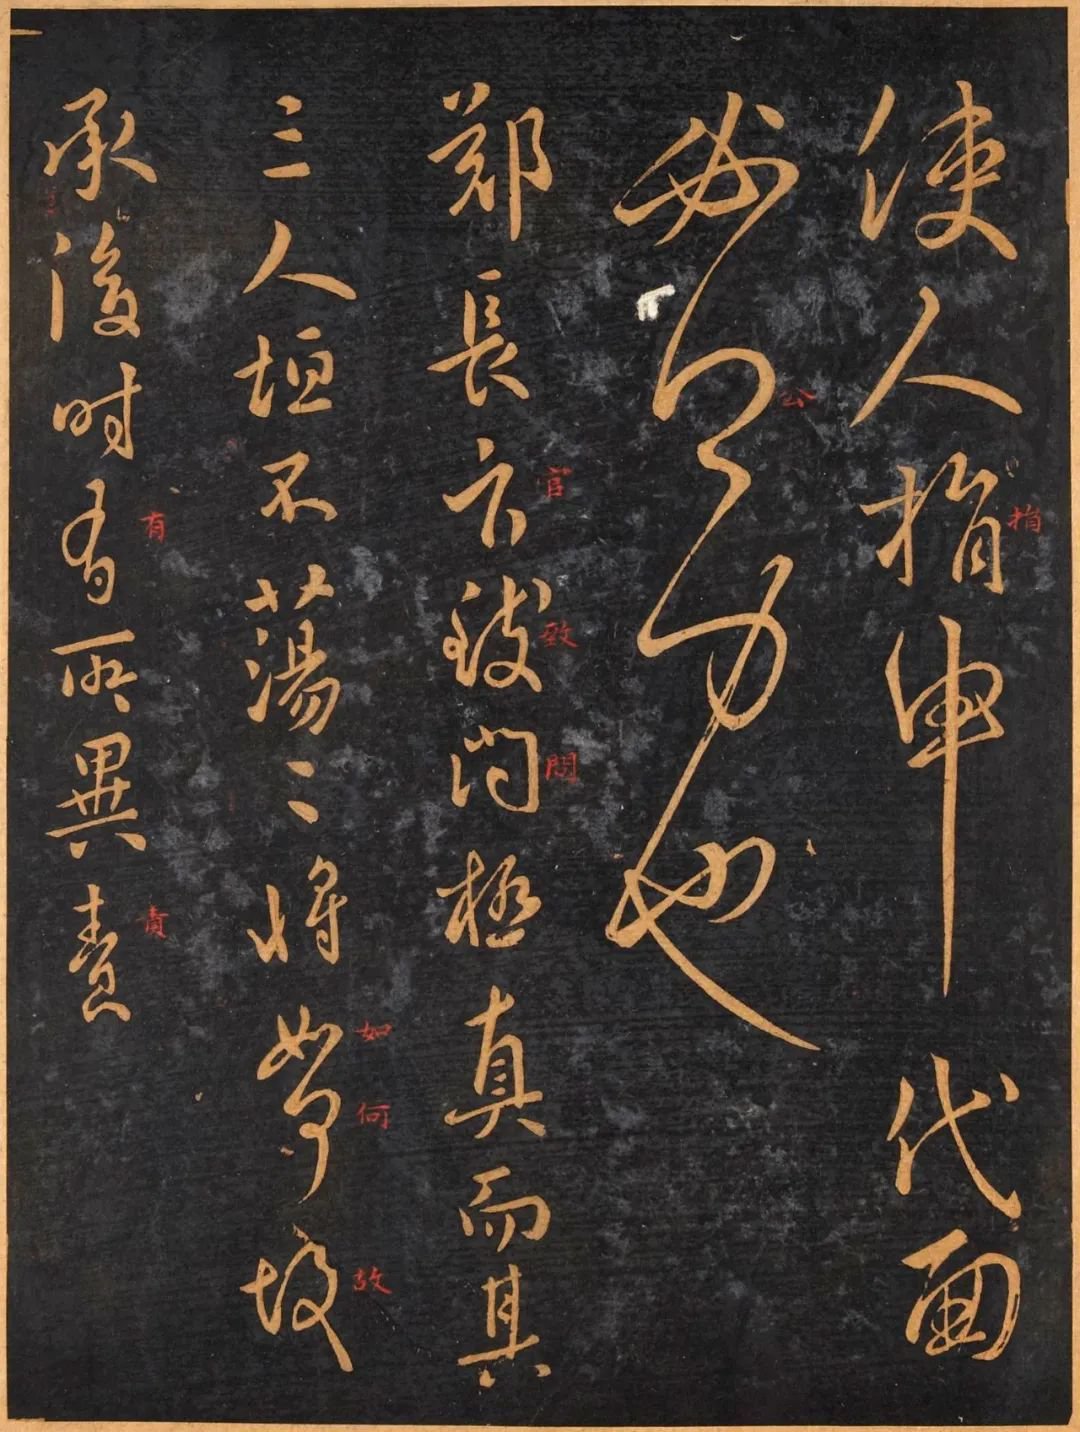 使人捐申代面
捐
公 也
公
鄭長官致問極真而其
官
致
問
三人坦不蕩〻將如何故
如
何
故
承後時有所異責
有
責